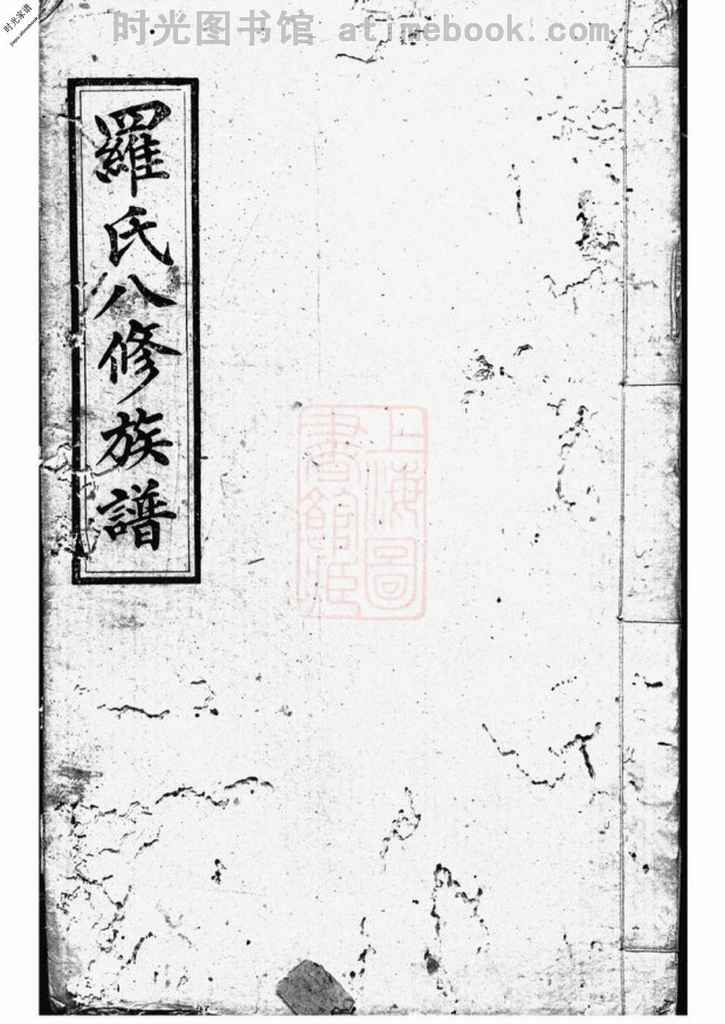 时光图书馆 atimebook.com
时光家谱
羅氏八修族譜
上海圖
書館藏